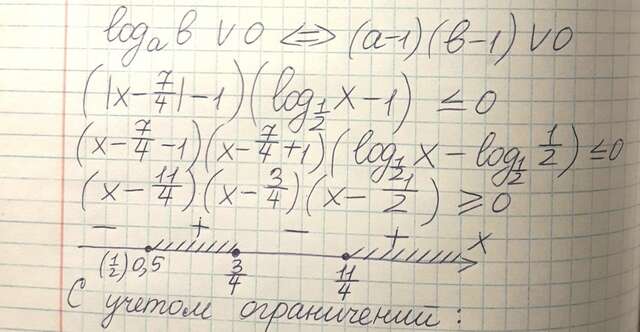 log_a b ∨ 0 ⇔ (a-1)(b-1) ∨ 0
(|x - 7/4| - 1)(log_{1/2} x - 1) ≤ 0
(x - 7/4 - 1)(x - 7/4 + 1)(log_{1/2} x - log_{1/2} 1/2) ≤ 0
(x - 11/4)(x - 3/4)(x - 1/2) ≥ 0
- + - + x
(1/2) 0,5 3/4 11/4
С учетом ограничений: